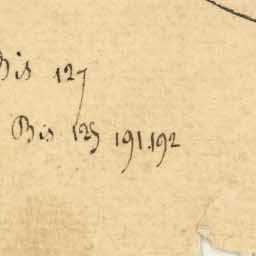 Bis 127
Bis 125 191.192